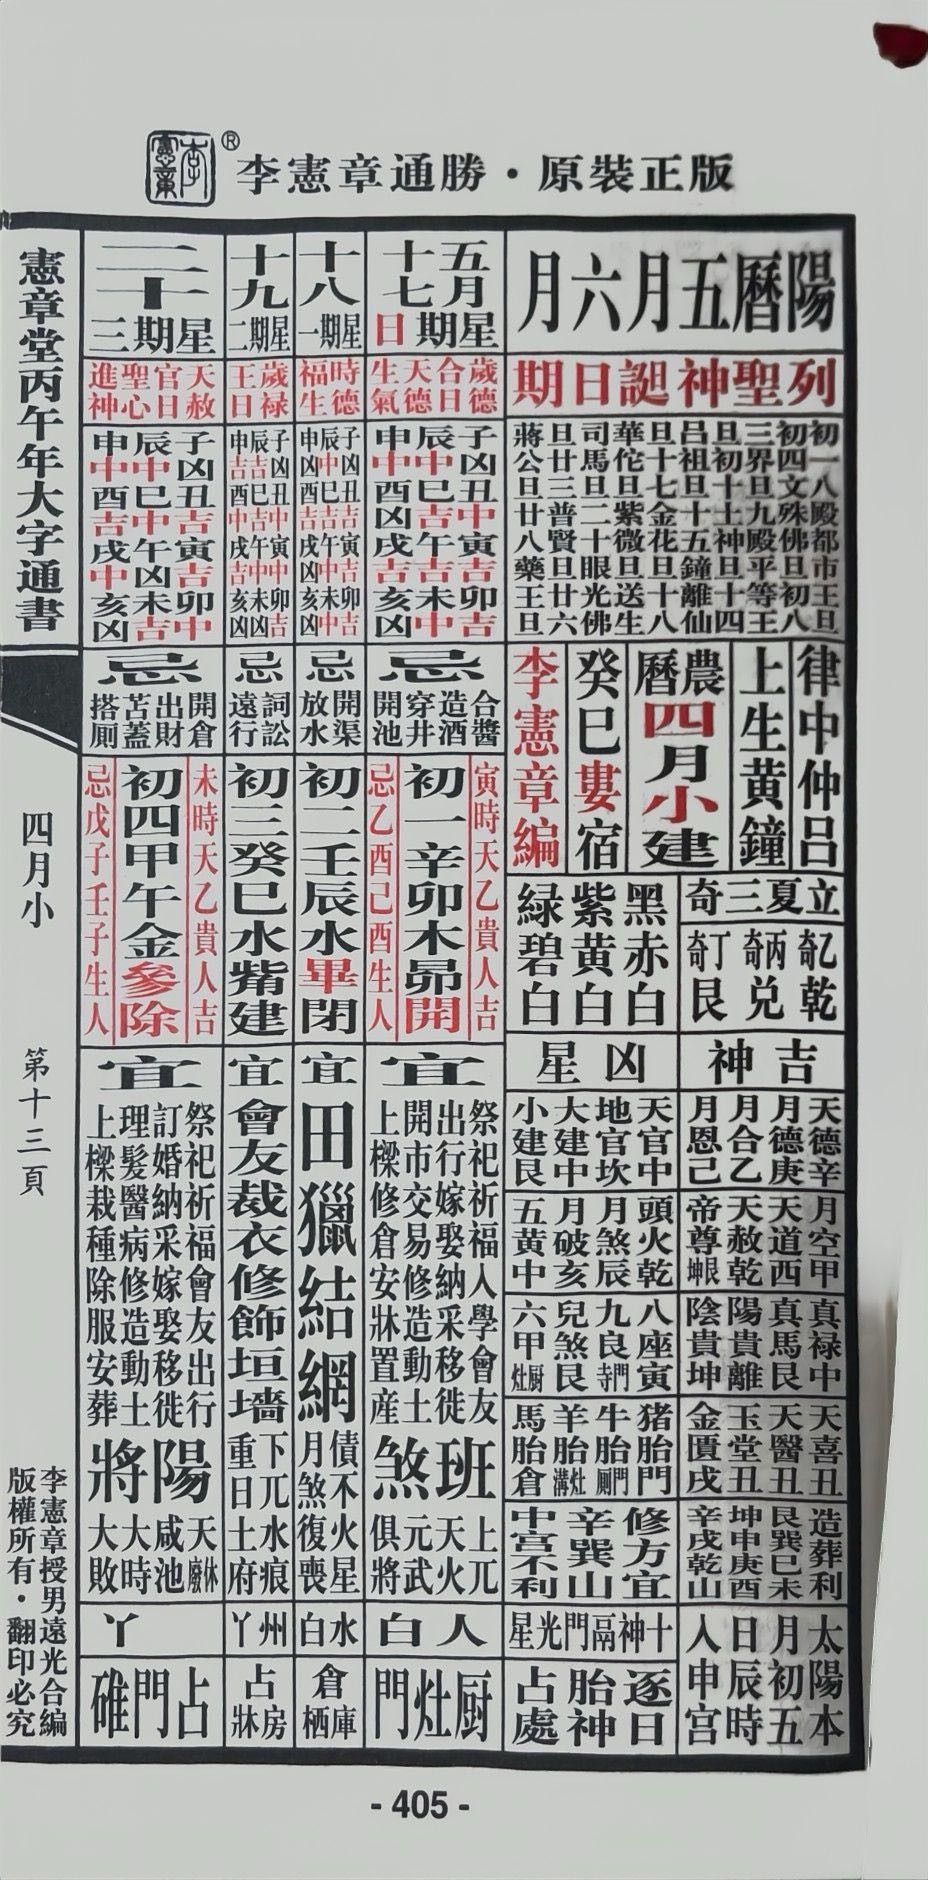 李憲章®
李憲章通勝・原裝正版
陽曆五月六月
列聖神誕日期
初一八殿都市王旦
初四文殊佛旦初八
三界旦九殿平等王
旦初十土神旦十四
呂祖旦十五鐘離仙
旦十七金花旦十八
華佗旦紫微旦送生
司馬旦二十眼光佛
旦廿三普賢旦廿六
蔣公旦廿八藥王旦
律中仲呂
上生黃鐘
農曆四月小建
癸巳婁宿
李憲章編
立夏三奇
乙奇乾
丙奇兌
丁奇艮
黑赤白
紫黃白
綠碧白
吉神
天德辛
月德庚
月合乙
月恩己
月空甲
天道西
天赦乾
帝尊坤艮
真祿中
真馬艮
陽貴離
陰貴坤
天喜丑
天醫丑
玉堂丑
金匱戌
造葬利
艮巽巳未
坤申庚酉
辛戌乾山
太陽本
月初五
日辰時
入申宮
凶星
天官中
地官坎
大建中
小建艮
頭火乾
月煞辰
月破亥
五黃中
八座寅
九良寺門
兒煞艮
六甲厨灶
猪胎門
牛胎門厠
羊胎灶溝
馬胎倉
修方宜
辛巽山
中宮不利
十神鬲門光星
逐日
胎神
占處
五月十七星期日
歲德合日天德生氣
子凶丑中寅吉卯吉
辰中巳吉午吉未中
申中酉凶戌吉亥凶
忌
合醬
造酒
穿井
開池
寅時天乙貴人吉
初一辛卯木昴開
忌乙酉己酉生人
宜
祭祀祈福入學會友
出行嫁娶納采移徙
開市交易修造動土
上樑修倉安牀置産
班煞
上兀
天火
元武
俱將
人白
厨灶門
十八星期一
時德福生
子凶丑吉寅吉卯吉
辰中巳吉午中未中
申凶酉吉戌凶亥凶
忌
開渠
放水
初二壬辰水畢閉
宜
田獵結網
債不火星
月煞復喪
水白
倉庫栖
十九星期二
歲祿王日
子凶丑中寅中卯吉
辰吉巳吉午中未凶
申吉酉中戌吉亥凶
忌
詞訟
遠行
初三癸巳水觜建
宜
會友裁衣修飾垣墻
下兀水痕
重日土府
州丫
占房牀
二十星期三
天赦官日聖心進神
子凶丑吉寅吉卯中
辰中巳中午凶未吉
申中酉吉戌中亥凶
忌
開倉
出財
苫蓋
搭厠
未時天乙貴人吉
初四甲午金參除
忌戊子壬子生人
宜
祭祀祈福會友出行
訂婚納采嫁娶移徙
理髮醫病修造動土
上樑栽種除服安葬
陽將
天休廢
咸池
大時
大敗
丫
占門碓
憲章堂丙午年大字通書
四月小
第十三頁
李憲章授男遠光合編
版權所有・翻印必究
- 405 -